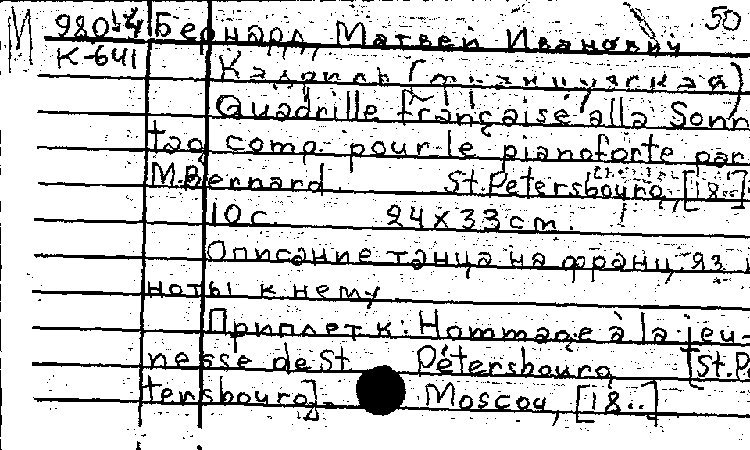 М 980 Бернард, Матвей Иванович 50
К-641
Кадриль (французская)
Quadrille française alla Sonn
tag comp. pour le pianoforte par
M.Bernard. St.Petersbourg, [18..]
10 с. 24 x 33 cm.
Описание танца на франц. яз.
ноты к нему
Приплет к: Hommage à la jeu-
nesse de St Pétersbourg [St.Pe
tersbourg]. Moscou, [18..]